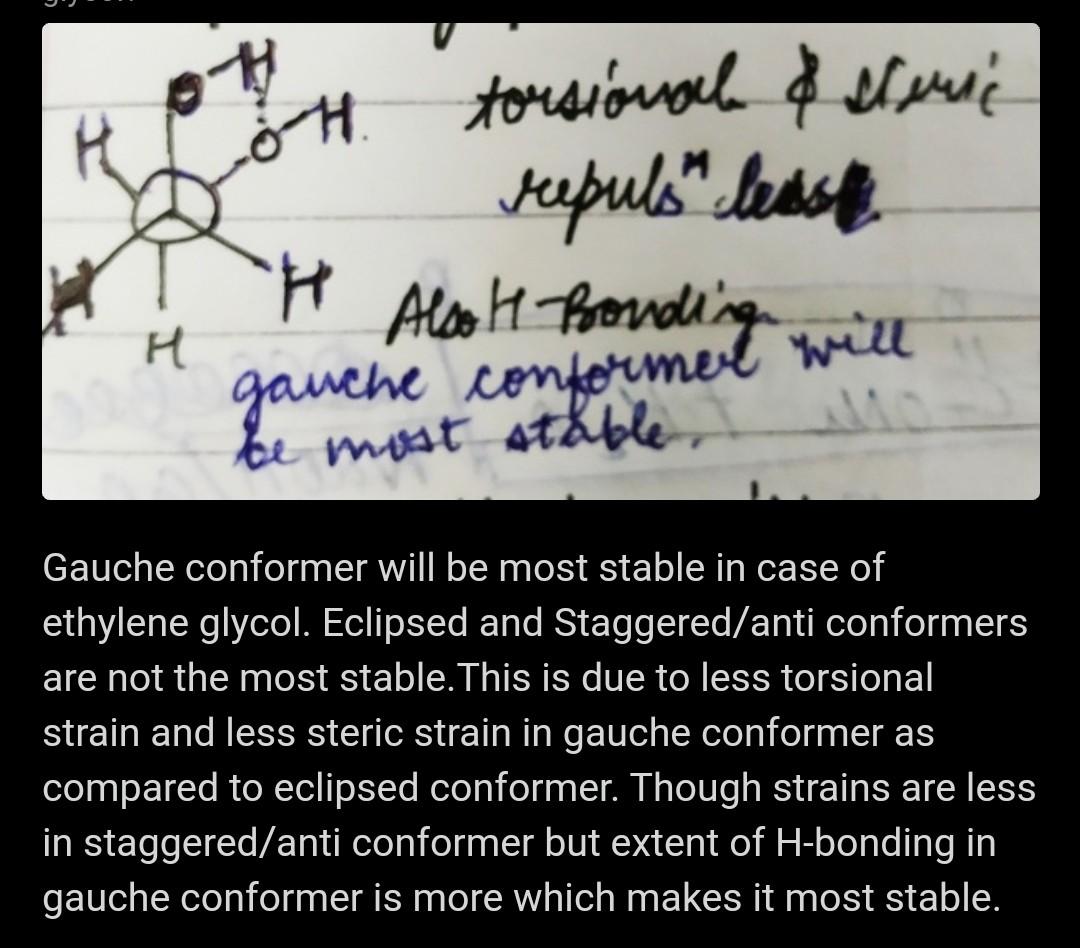 O-H
H
O-H
torsional & steric
repulsⁿ less
H
H
H
Also H-Bonding
gauche conformer will
be most stable.
Gauche conformer will be most stable in case of
ethylene glycol. Eclipsed and Staggered/anti conformers
are not the most stable.This is due to less torsional
strain and less steric strain in gauche conformer as
compared to eclipsed conformer. Though strains are less
in staggered/anti conformer but extent of H-bonding in
gauche conformer is more which makes it most stable.